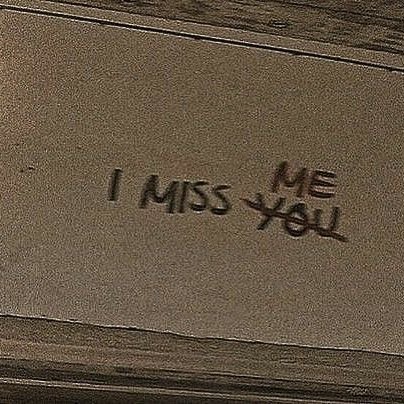 I MISS YOU ME